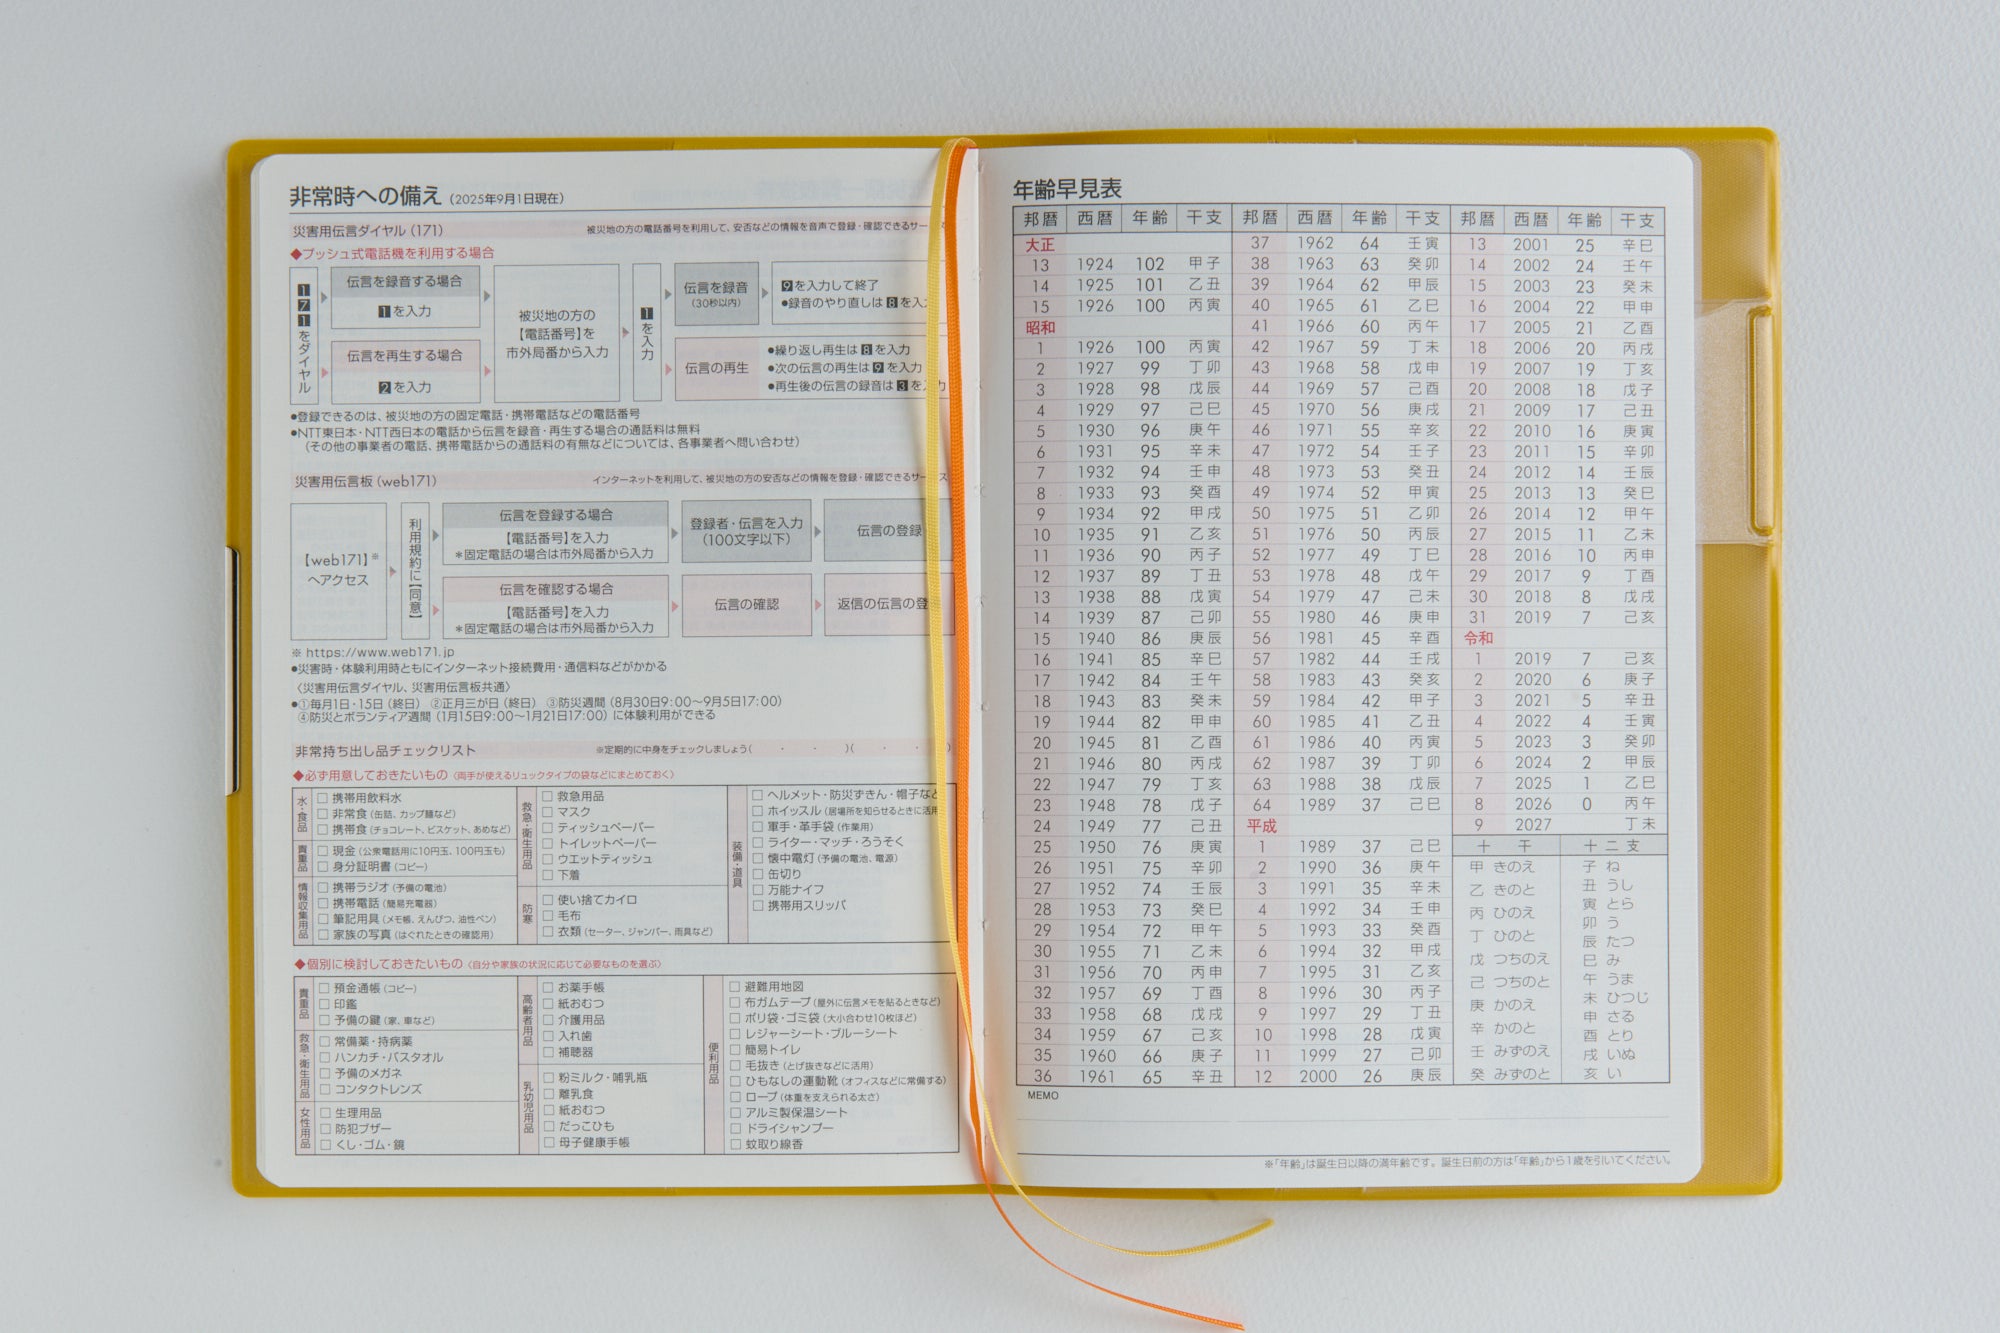 非常時への備え（2025年9月1日現在）
災害用伝言ダイヤル（171） 被災地の方の電話番号を利用して、安否などの情報を音声で登録・確認できるサー
◆プッシュ式電話機を利用する場合
171をダイヤル
伝言を録音する場合
1を入力
伝言を再生する場合
2を入力
被災地の方の
【電話番号】を
市外局番から入力
1を入力
伝言を録音
（30秒以内）
9を入力して終了
●録音のやり直しは8を入
伝言の再生
●繰り返し再生は8を入力
●次の伝言の再生は9を入力
●再生後の伝言の録音は3を入力
●登録できるのは、被災地の方の固定電話・携帯電話などの電話番号
●NTT東日本・NTT西日本の電話から伝言を録音・再生する場合の通話料は無料
（その他の事業者の電話、携帯電話からの通話料の有無などについては、各事業者へ問い合わせ）
災害用伝言板（web171） インターネットを利用して、被災地の方の安否などの情報を登録・確認できるサービス
【web171】※
へアクセス
利用規約に【同意】
伝言を登録する場合
【電話番号】を入力
＊固定電話の場合は市外局番から入力
登録者・伝言を入力
（100文字以下）
伝言の登録
伝言を確認する場合
【電話番号】を入力
＊固定電話の場合は市外局番から入力
伝言の確認
返信の伝言の登
※ https://www.web171.jp
●災害時・体験利用時ともにインターネット接続費用・通信料などがかかる
〈災害用伝言ダイヤル、災害用伝言板共通〉
●①毎月1日・15日（終日） ②正月三が日（終日） ③防災週間（8月30日9:00～9月5日17:00）
④防災とボランティア週間（1月15日9:00～1月21日17:00）に体験利用ができる
非常持ち出し品チェックリスト ※定期的に中身をチェックしましょう（ ・ ・ ）（ ・ ・ ）
◆必ず用意しておきたいもの〈両手が使えるリュックタイプの袋などにまとめておく〉
水・食品
□ 携帯用飲料水
□ 非常食（缶詰、カップ麺など）
□ 携帯食（チョコレート、ビスケット、あめなど）
貴重品
□ 現金（公衆電話用に10円玉、100円玉も）
□ 身分証明書（コピー）
情報収集用品
□ 携帯ラジオ（予備の電池）
□ 携帯電話（簡易充電器）
□ 筆記用具（メモ帳、えんぴつ、油性ペン）
□ 家族の写真（はぐれたときの確認用）
救急・衛生用品
□ 救急用品
□ マスク
□ ティッシュペーパー
□ トイレットペーパー
□ ウエットティッシュ
□ 下着
防寒
□ 使い捨てカイロ
□ 毛布
□ 衣類（セーター、ジャンパー、雨具など）
装備・道具
□ ヘルメット・防災ずきん・帽子など
□ ホイッスル（居場所を知らせるときに活用
□ 軍手・革手袋（作業用）
□ ライター・マッチ・ろうそく
□ 懐中電灯（予備の電池、電源）
□ 缶切り
□ 万能ナイフ
□ 携帯用スリッパ
◆個別に検討しておきたいもの〈自分や家族の状況に応じて必要なものを選ぶ〉
貴重品
□ 預金通帳（コピー）
□ 印鑑
□ 予備の鍵（家、車など）
救急・衛生用品
□ 常備薬・持病薬
□ ハンカチ・バスタオル
□ 予備のメガネ
□ コンタクトレンズ
女性用品
□ 生理用品
□ 防犯ブザー
□ くし・ゴム・鏡
高齢者用品
□ お薬手帳
□ 紙おむつ
□ 介護用品
□ 入れ歯
□ 補聴器
乳幼児用品
□ 粉ミルク・哺乳瓶
□ 離乳食
□ 紙おむつ
□ だっこひも
□ 母子健康手帳
便利用品
□ 避難用地図
□ 布ガムテープ（屋外に伝言メモを貼るときなど）
□ ポリ袋・ゴミ袋（大小合わせ10枚ほど）
□ レジャーシート・ブルーシート
□ 簡易トイレ
□ 毛抜き（とげ抜きなどに活用）
□ ひもなしの運動靴（オフィスなどに常備する）
□ ロープ（体重を支えられる太さ）
□ アルミ製保温シート
□ ドライシャンプー
□ 蚊取り線香
年齢早見表
邦暦 西暦 年齢 干支
大正
13 1924 102 甲子
14 1925 101 乙丑
15 1926 100 丙寅
昭和
1 1926 100 丙寅
2 1927 99 丁卯
3 1928 98 戊辰
4 1929 97 己巳
5 1930 96 庚午
6 1931 95 辛未
7 1932 94 壬申
8 1933 93 癸酉
9 1934 92 甲戌
10 1935 91 乙亥
11 1936 90 丙子
12 1937 89 丁丑
13 1938 88 戊寅
14 1939 87 己卯
15 1940 86 庚辰
16 1941 85 辛巳
17 1942 84 壬午
18 1943 83 癸未
19 1944 82 甲申
20 1945 81 乙酉
21 1946 80 丙戌
22 1947 79 丁亥
23 1948 78 戊子
24 1949 77 己丑
25 1950 76 庚寅
26 1951 75 辛卯
27 1952 74 壬辰
28 1953 73 癸巳
29 1954 72 甲午
30 1955 71 乙未
31 1956 70 丙申
32 1957 69 丁酉
33 1958 68 戊戌
34 1959 67 己亥
35 1960 66 庚子
36 1961 65 辛丑
邦暦 西暦 年齢 干支
37 1962 64 壬寅
38 1963 63 癸卯
39 1964 62 甲辰
40 1965 61 乙巳
41 1966 60 丙午
42 1967 59 丁未
43 1968 58 戊申
44 1969 57 己酉
45 1970 56 庚戌
46 1971 55 辛亥
47 1972 54 壬子
48 1973 53 癸丑
49 1974 52 甲寅
50 1975 51 乙卯
51 1976 50 丙辰
52 1977 49 丁巳
53 1978 48 戊午
54 1979 47 己未
55 1980 46 庚申
56 1981 45 辛酉
57 1982 44 壬戌
58 1983 43 癸亥
59 1984 42 甲子
60 1985 41 乙丑
61 1986 40 丙寅
62 1987 39 丁卯
63 1988 38 戊辰
64 1989 37 己巳
平成
1 1989 37 己巳
2 1990 36 庚午
3 1991 35 辛未
4 1992 34 壬申
5 1993 33 癸酉
6 1994 32 甲戌
7 1995 31 乙亥
8 1996 30 丙子
9 1997 29 丁丑
10 1998 28 戊寅
11 1999 27 己卯
12 2000 26 庚辰
邦暦 西暦 年齢 干支
13 2001 25 辛巳
14 2002 24 壬午
15 2003 23 癸未
16 2004 22 甲申
17 2005 21 乙酉
18 2006 20 丙戌
19 2007 19 丁亥
20 2008 18 戊子
21 2009 17 己丑
22 2010 16 庚寅
23 2011 15 辛卯
24 2012 14 壬辰
25 2013 13 癸巳
26 2014 12 甲午
27 2015 11 乙未
28 2016 10 丙申
29 2017 9 丁酉
30 2018 8 戊戌
31 2019 7 己亥
令和
1 2019 7 己亥
2 2020 6 庚子
3 2021 5 辛丑
4 2022 4 壬寅
5 2023 3 癸卯
6 2024 2 甲辰
7 2025 1 乙巳
8 2026 0 丙午
9 2027 丁未
十干
甲 きのえ
乙 きのと
丙 ひのえ
丁 ひのと
戊 つちのえ
己 つちのと
庚 かのえ
辛 かのと
壬 みずのえ
癸 みずのと
十二支
子 ね
丑 うし
寅 とら
卯 う
辰 たつ
巳 み
午 うま
未 ひつじ
申 さる
酉 とり
戌 いぬ
亥 い
MEMO
※「年齢」は誕生日以降の満年齢です。誕生日前の方は「年齢」から1歳を引いてください。